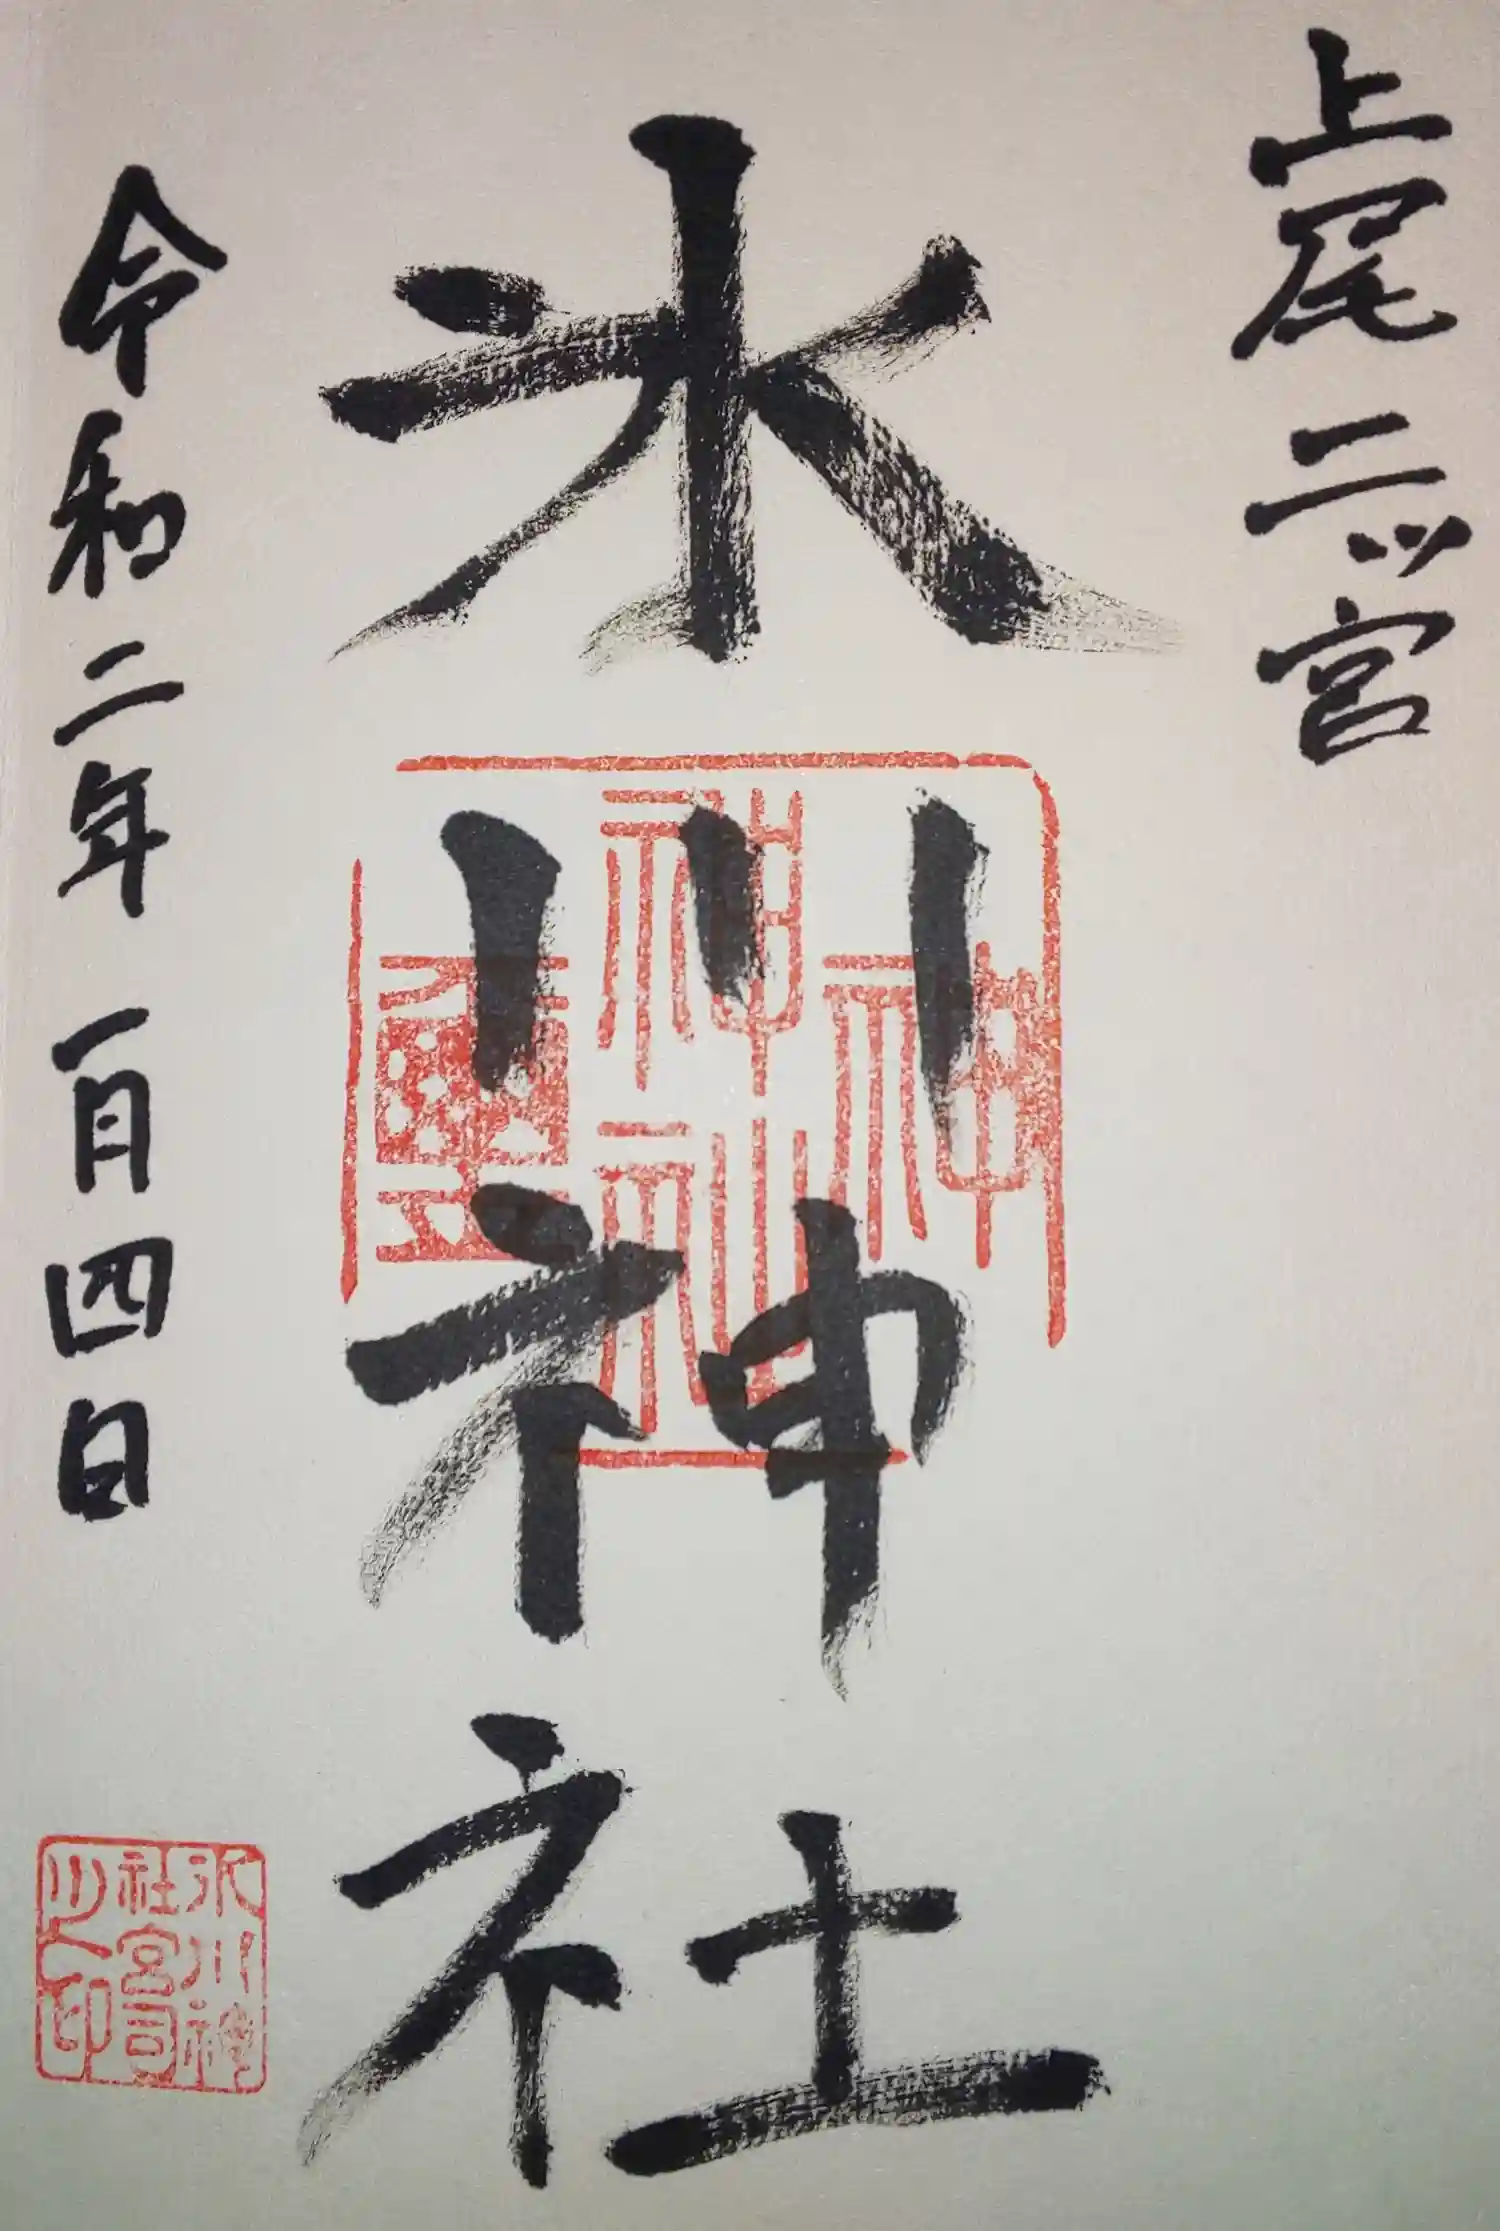 上尾二ッ宮
氷川神社
令和二年一月四日
氷川神
社宮司
之印